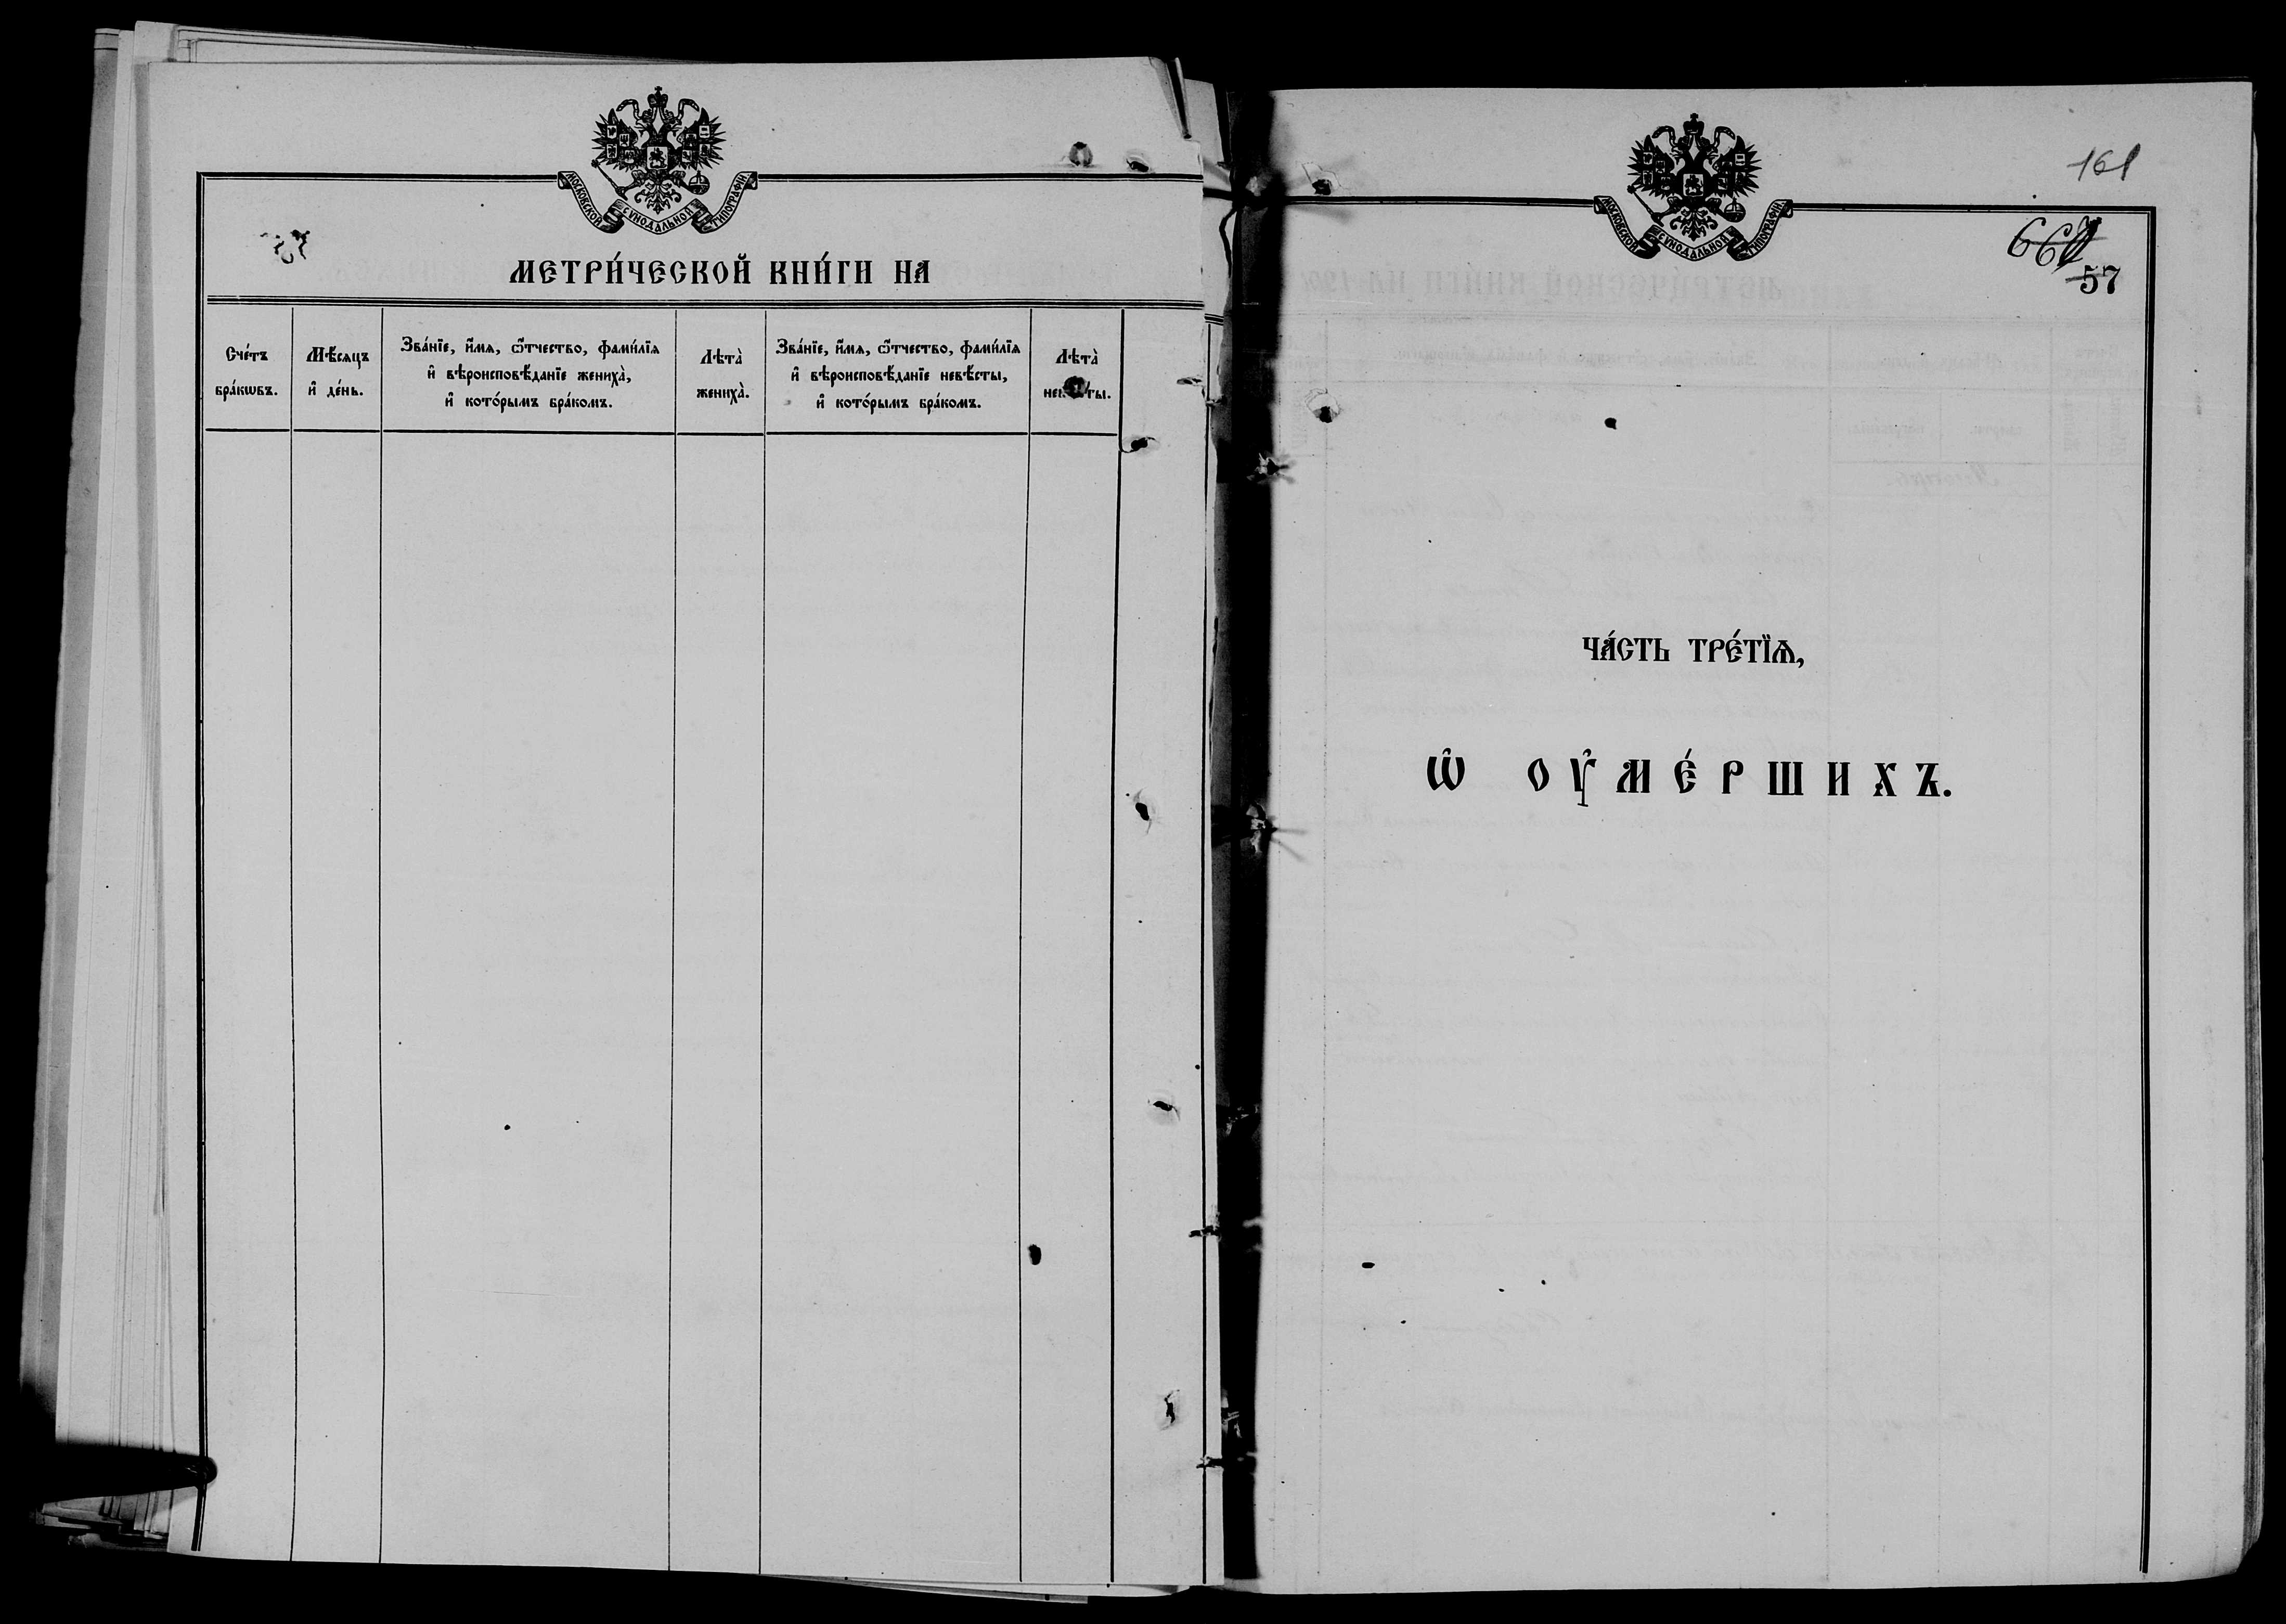 МОСКОВСКОЙ СѴНОДАЛЬНОЙ ТИПОГРАФІИ
МЕТРИ́ЧЕСКОЙ КНИ́ГИ НА
Сче́тъ
бра́кѡвъ.
Мѣ́сяцъ
и҆ де́нь.
Зва́нїе, и҆́мя, ѻ҆́тчество, фами́лїя
и҆ вѣроисповѣ́данїе жениха̀,
и҆ кото́рымъ бра́комъ.
Лѣта̀
жениха̀.
Зва́нїе, и҆́мя, ѻ҆́тчество, фами́лїя
и҆ вѣроисповѣ́данїе невѣ́сты,
и҆ кото́рымъ бра́комъ.
Лѣта̀
невѣ́сты.
МОСКОВСКОЙ СѴНОДАЛЬНОЙ ТИПОГРАФІИ
161
57
ЧА́СТЬ ТРЕ́ТЇѦ,
Ѡ҆ ОУ҆МЕ́РШИХЪ.